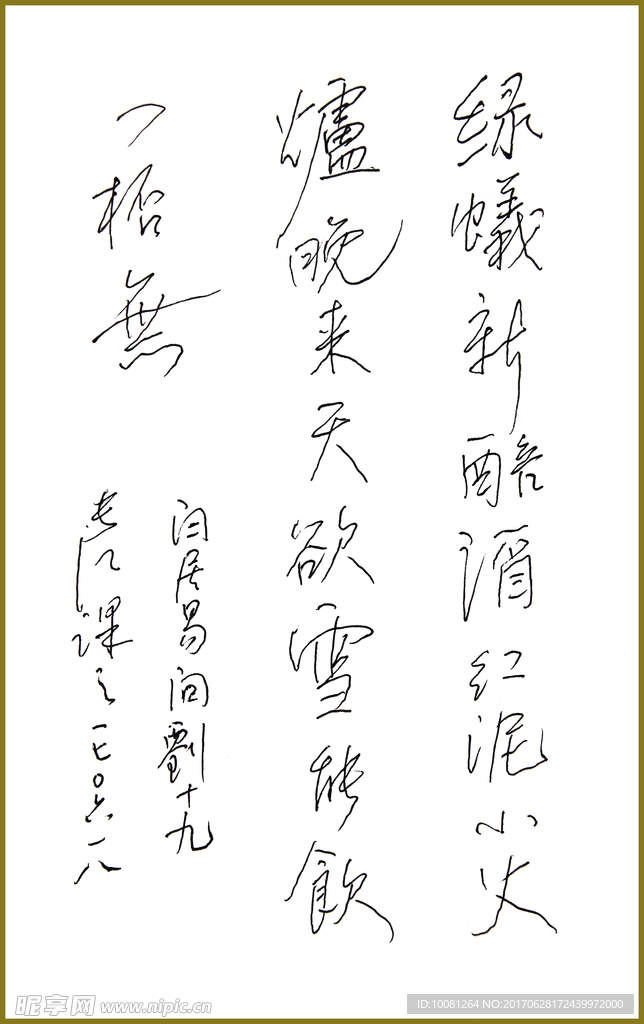 绿蟻新醅酒红泥小火
爐晚来天欲雪能飲
一桮無
白居易问劉十九
课之一七〇六一八
昵享网 www.nipic.cn
ID:10081264 NO:20170628172439972000